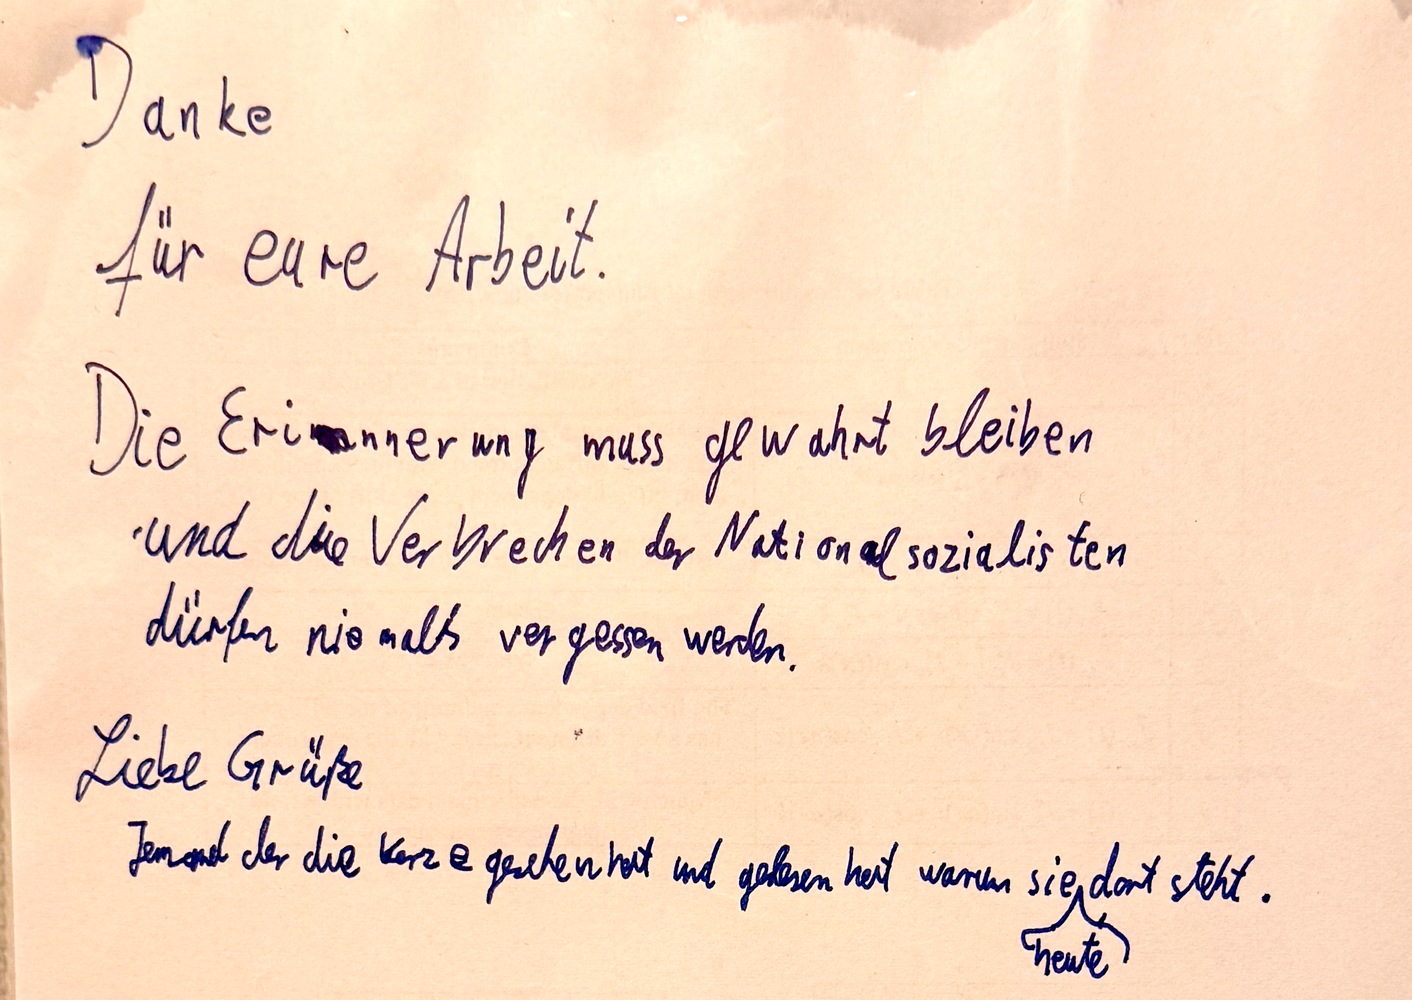 Danke
für eure Arbeit.
Die Erinnerung muss gewahrt bleiben
und die Verbrechen der Nationalsozialisten
dürfen niemals vergessen werden.
Liebe Grüße
Jemand der die Kerze gesehen hat und gelesen hat warum sie dort steht.
heute